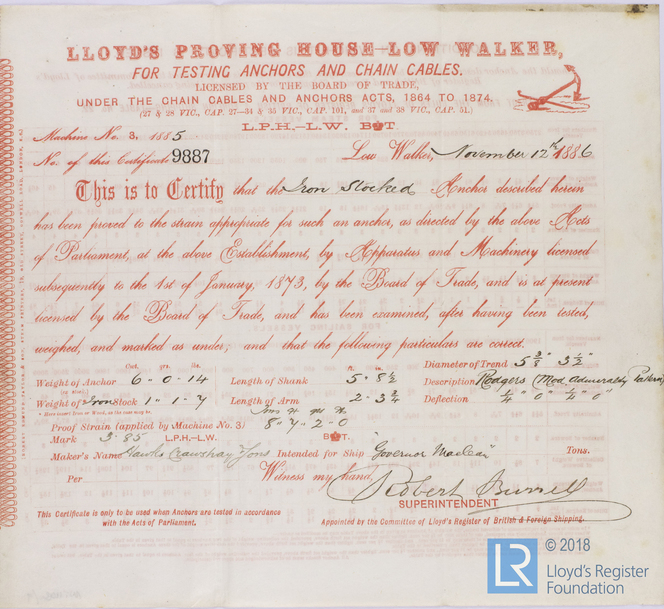 LLOYD'S PROVING HOUSE—LOW WALKER,
FOR TESTING ANCHORS AND CHAIN CABLES.
LICENSED BY THE BOARD OF TRADE,
UNDER THE CHAIN CABLES AND ANCHORS ACTS, 1864 TO 1874.
(27 & 28 VIC., CAP. 27—34 & 35 VIC., CAP. 101, and 37 and 38 VIC., CAP. 51.)
L.P.H.-L.W. B T
Machine No. 3, 1885
No. of this Certificate 9887
Low Walker, November 12th 1886
This is to Certify that the Iron Stocked Anchor described herein
has been proved to the strain appropriate for such an anchor, as directed by the above Acts
of Parliament, at the above Establishment, by Apparatus and Machinery licensed
subsequently to the 1st of January, 1873, by the Board of Trade, and is at present
licensed by the Board of Trade, and has been examined, after having been tested,
weighed, and marked as under; and that the following particulars are correct.
Diameter of Trend 5 3/8" 3 1/2"
Cwt. qrs. lbs.
ft. in.
Weight of Anchor 6 - 0 - 14 Length of Shank 5 - 8 1/2 Description Rodgers (Mod. Admiralty Pattern)
(ex Stock)
Weight of Iron Stock 1 - 1 - 7 Length of Arm 2 - 3 3/4 Deflection 1/4" 0" 1/4" 0"
* Here insert Iron or Wood, as the case may be.
Proof Strain (applied by Machine No. 3) 8 " 7 " 2 " 0
Mark 3 85 L.P.H.-L.W. B T.
Maker's Name Hawks Crawshay & Sons Intended for Ship "Governor Maclean" Tons.
Per Witness my hand,
Robert Burrell
SUPERINTENDENT
This Certificate is only to be used when Anchors are tested in accordance
with the Acts of Parliament.
Appointed by the Committee of Lloyd's Register of British & Foreign Shipping.
LR © 2018
Lloyd's Register
Foundation